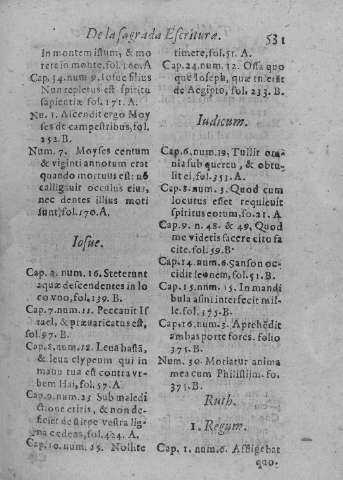 De la sagrada Escrituræ. 531
in montem istum, & mo
rere in monte. fol. 160. A
Cap. 34. num 9. Iosue filius
Nun repletus est spiritu
sapientiæ fol. 171. A.
Nu. 1. Ascendit ergo Moy
ses de campestribus, fol.
252. B.
Num. 7. Moyses centum
& viginti annotum erat
quando mortuus est: nō
calligauit occulus eius,
nec dentes illius moti
sunt, fol. 170. A.
Iosue.
Cap. 2. num. 16. Steterunt
aquæ descendentes in lo
co vno, fol. 139. B.
Cap. 7. num. 11. Peccauit Is
rael, & præuaricatus est,
fol. 97. B.
Cap. 8. num. 18. Leua hastã,
& leua clypeum qui in
manu tua est contra vr-
bem Hai, fol. 57. A.
Cap. 9. num. 23 Sub maledi
ctione eritis, & non de-
ficiet de stirpe vestra lig-
na cædens, fol. 424. A.
Cap. 10. num. 25. Nolite
timere, fol. 51. A.
Cap. 24. num. 32. Ossa quo
que Ioseph, quæ tulerãt
de Aegipto, fol. 233. B.
Iudicum.
Cap. 6. num. 19. Tullit om̃
nia sub quercu, & obtu-
lit ei, fol. 353. A.
Cap. 8. num. 3. Quod cum
locutus esset requieuit
spiritus eorum, fo. 21. A
Cap. 9. n. 48. & 49. Quod
me videris facere cito fa
cite. fol. 59. B
Cap. 14. num. 6. Sanson oc-
cidit leonem, fol. 51. B.
Cap. 15. num. 15. In mandi
bula asini interfecit mil-
le. fol. 375. B.
Cap. 16. num. 3. Aprehēdit
ambas porte forcs. folio
375. B.
Num. 30. Moriatur anima
mea cum Philistijm. fo.
375. B.
Ruth.
1. Regum.
Cap. 1. num. 6. Affligebat
quo.